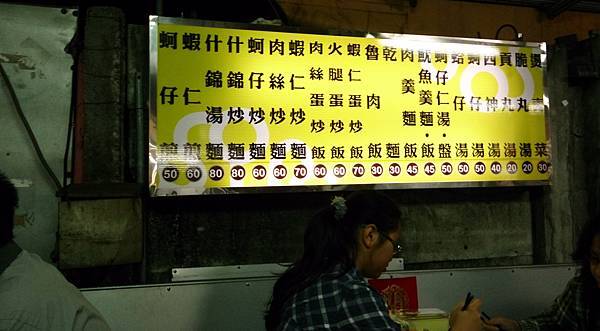 蚵仔煎 50
蝦仁煎 60
什錦湯麵 80
什錦炒麵 80
蚵仔炒麵 60
肉絲炒麵 60
蝦仁炒麵 70
肉絲蛋炒飯 60
火腿蛋炒飯 60
蝦仁蛋炒飯 70
魯肉飯 30
乾麵 30
肉羹麵飯 45
魷魚羹麵·飯 45
仔仁湯·盤 50
蛤仔湯 50
蚵仔湯 50
四神湯 40
貢丸湯 20
脆丸湯 20
燙青菜 30